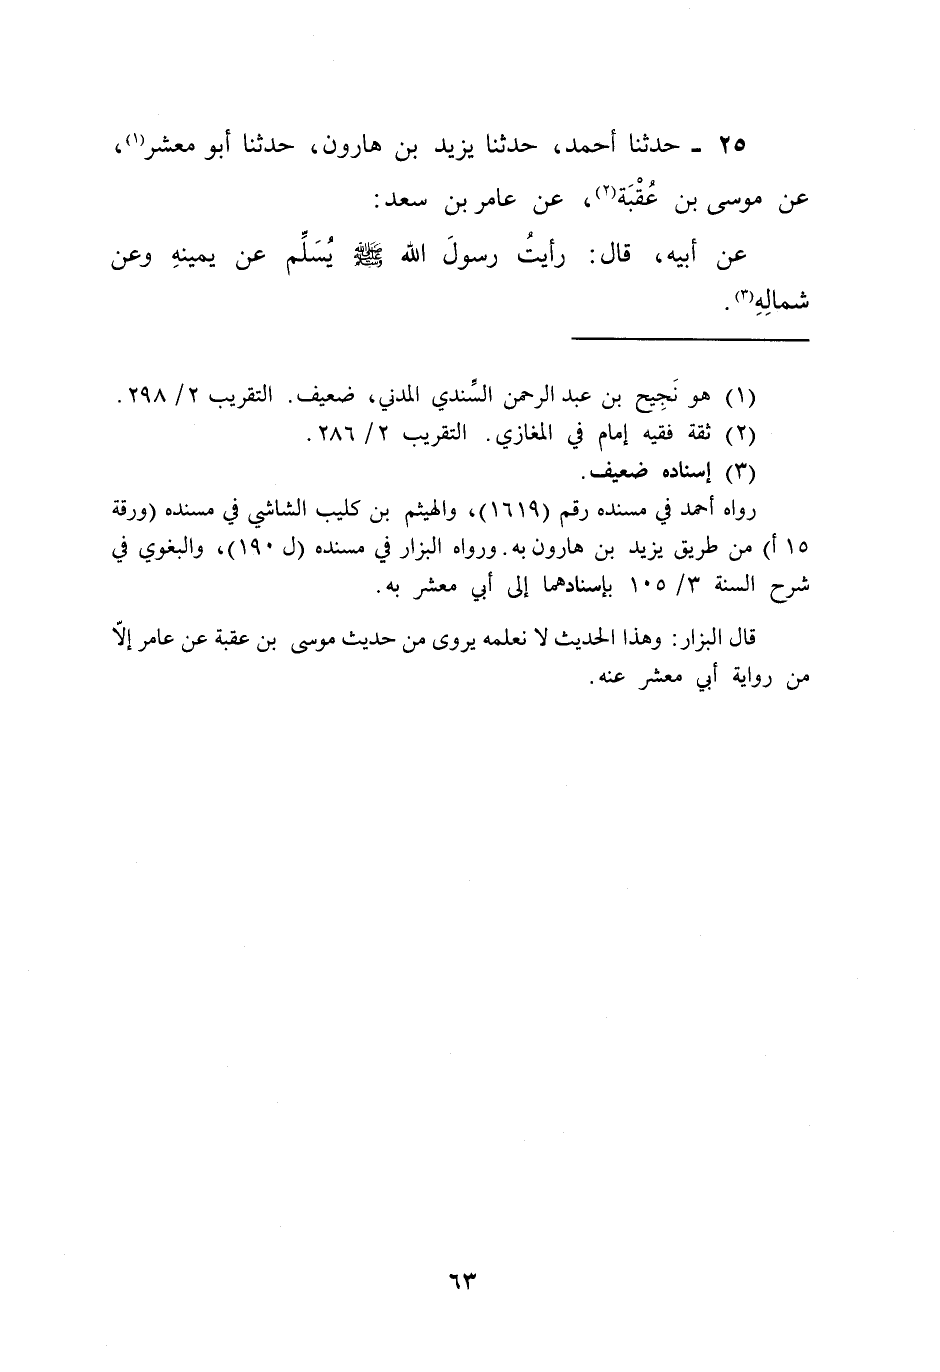 ٢٥ ـ حدثنا أحمد، حدثنا يزيد بن هارون، حدثنا أبو معشر(١)،
عن موسى بن عُقْبَة(٢)، عن عامر بن سعد:
عن أبيه، قال: رأيتُ رسولَ الله ﷺ يُسَلِّم عن يمينهِ وعن
شمالِهِ(٣).
(١) هو نَجِيح بن عبد الرحمن السِّندي المدني، ضعيف. التقريب ٢/ ٢٩٨.
(٢) ثقة فقيه إمام في المغازي. التقريب ٢/ ٢٨٦.
(٣) إسناده ضعيف.
رواه أحمد في مسنده رقم (١٦١٩)، والهيثم بن كليب الشاشي في مسنده (ورقة
١٥ أ) من طريق يزيد بن هارون به. ورواه البزار في مسنده (ل ١٩٠)، والبغوي في
شرح السنة ٣/ ١٠٥ بإسنادهما إلى أبي معشر به.
قال البزار: وهذا الحديث لا نعلمه يروى من حديث موسى بن عقبة عن عامر إلاّ
من رواية أبي معشر عنه.
٦٣